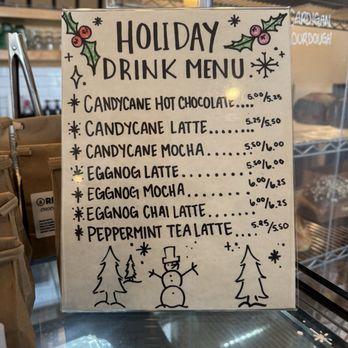 HOLIDAY
DRINK MENU
CANDYCANE HOT CHOCOLATE..5.00/5.25
CANDYCANE LATTE......5.25/5.50
CANDYCANE MOCHA......5.50/6.00
EGGNOG LATTE........5.50/6.00
EGGNOG MOCHA.......6.00/6.25
EGGNOG CHAI LATTE...6.00/6.25
PEPPERMINT TEA LATTE...5.25/5.50